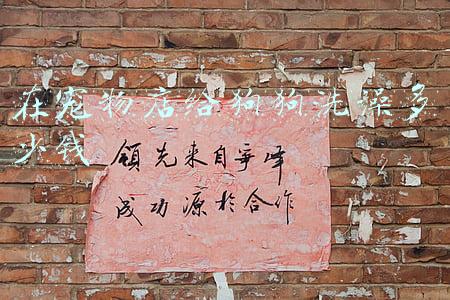 在宠物店给狗狗洗澡多
少钱
领先来自争峰
成功源于合作